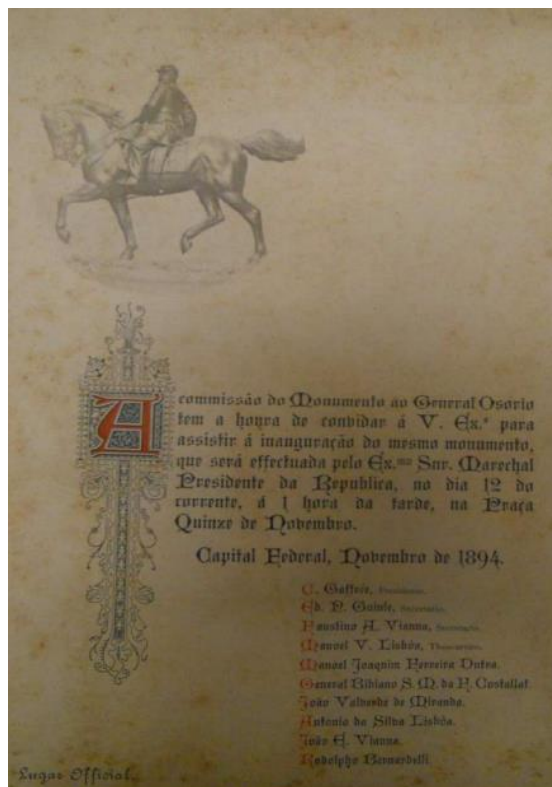 A commissão do Monumento ao General Osorio
tem a honra de convidar á V. Ex.ª para
assistir á inauguração do mesmo monumento,
que será effectuada pelo Ex.mo Snr. Marechal
Presidente da Republica, no dia 12 do
corrente, á 1 hora da tarde, na Praça
Quinze de Novembro.
Capital Federal, Novembro de 1894.
C. Gaffrée, Presidente.
Ed. P. Guinle, Secretario.
Faustino A. Vianna, Secretario.
Manoel V. Lisbôa, Thesoureiro.
Manoel Joaquim Ferreira Dutra.
General Bibiano S. M. da F. Costallat.
João Valverde de Miranda.
Antonio da Silva Lisbôa.
João E. Vianna.
Rodolpho Bernardelli.
Lugar Official.